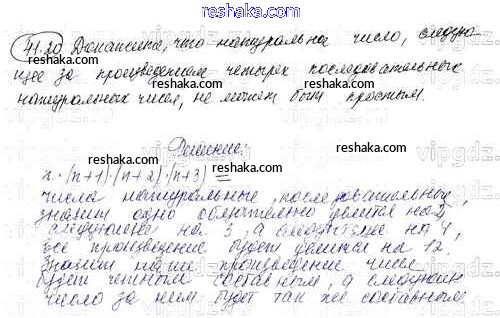 reshak.ru
41.20 Докажите, что натуральное число, следую-
reshak.ru
щее за произведением четырех последовательных
натуральных чисел, не может быть простым.
reshak.ru
Решение:
reshak.ru
n·(n+1)·(n+2)·(n+3) =
числа натуральные, последовательные,
значит одно обязательно делится на 2,
следующее на 3, а следующие на 4,
reshak.ru
все произведение будет делится на 12.
Значит наше произведение чисел
будет четным составным, а следующие
число за ним будет так же составным
reshak.ru